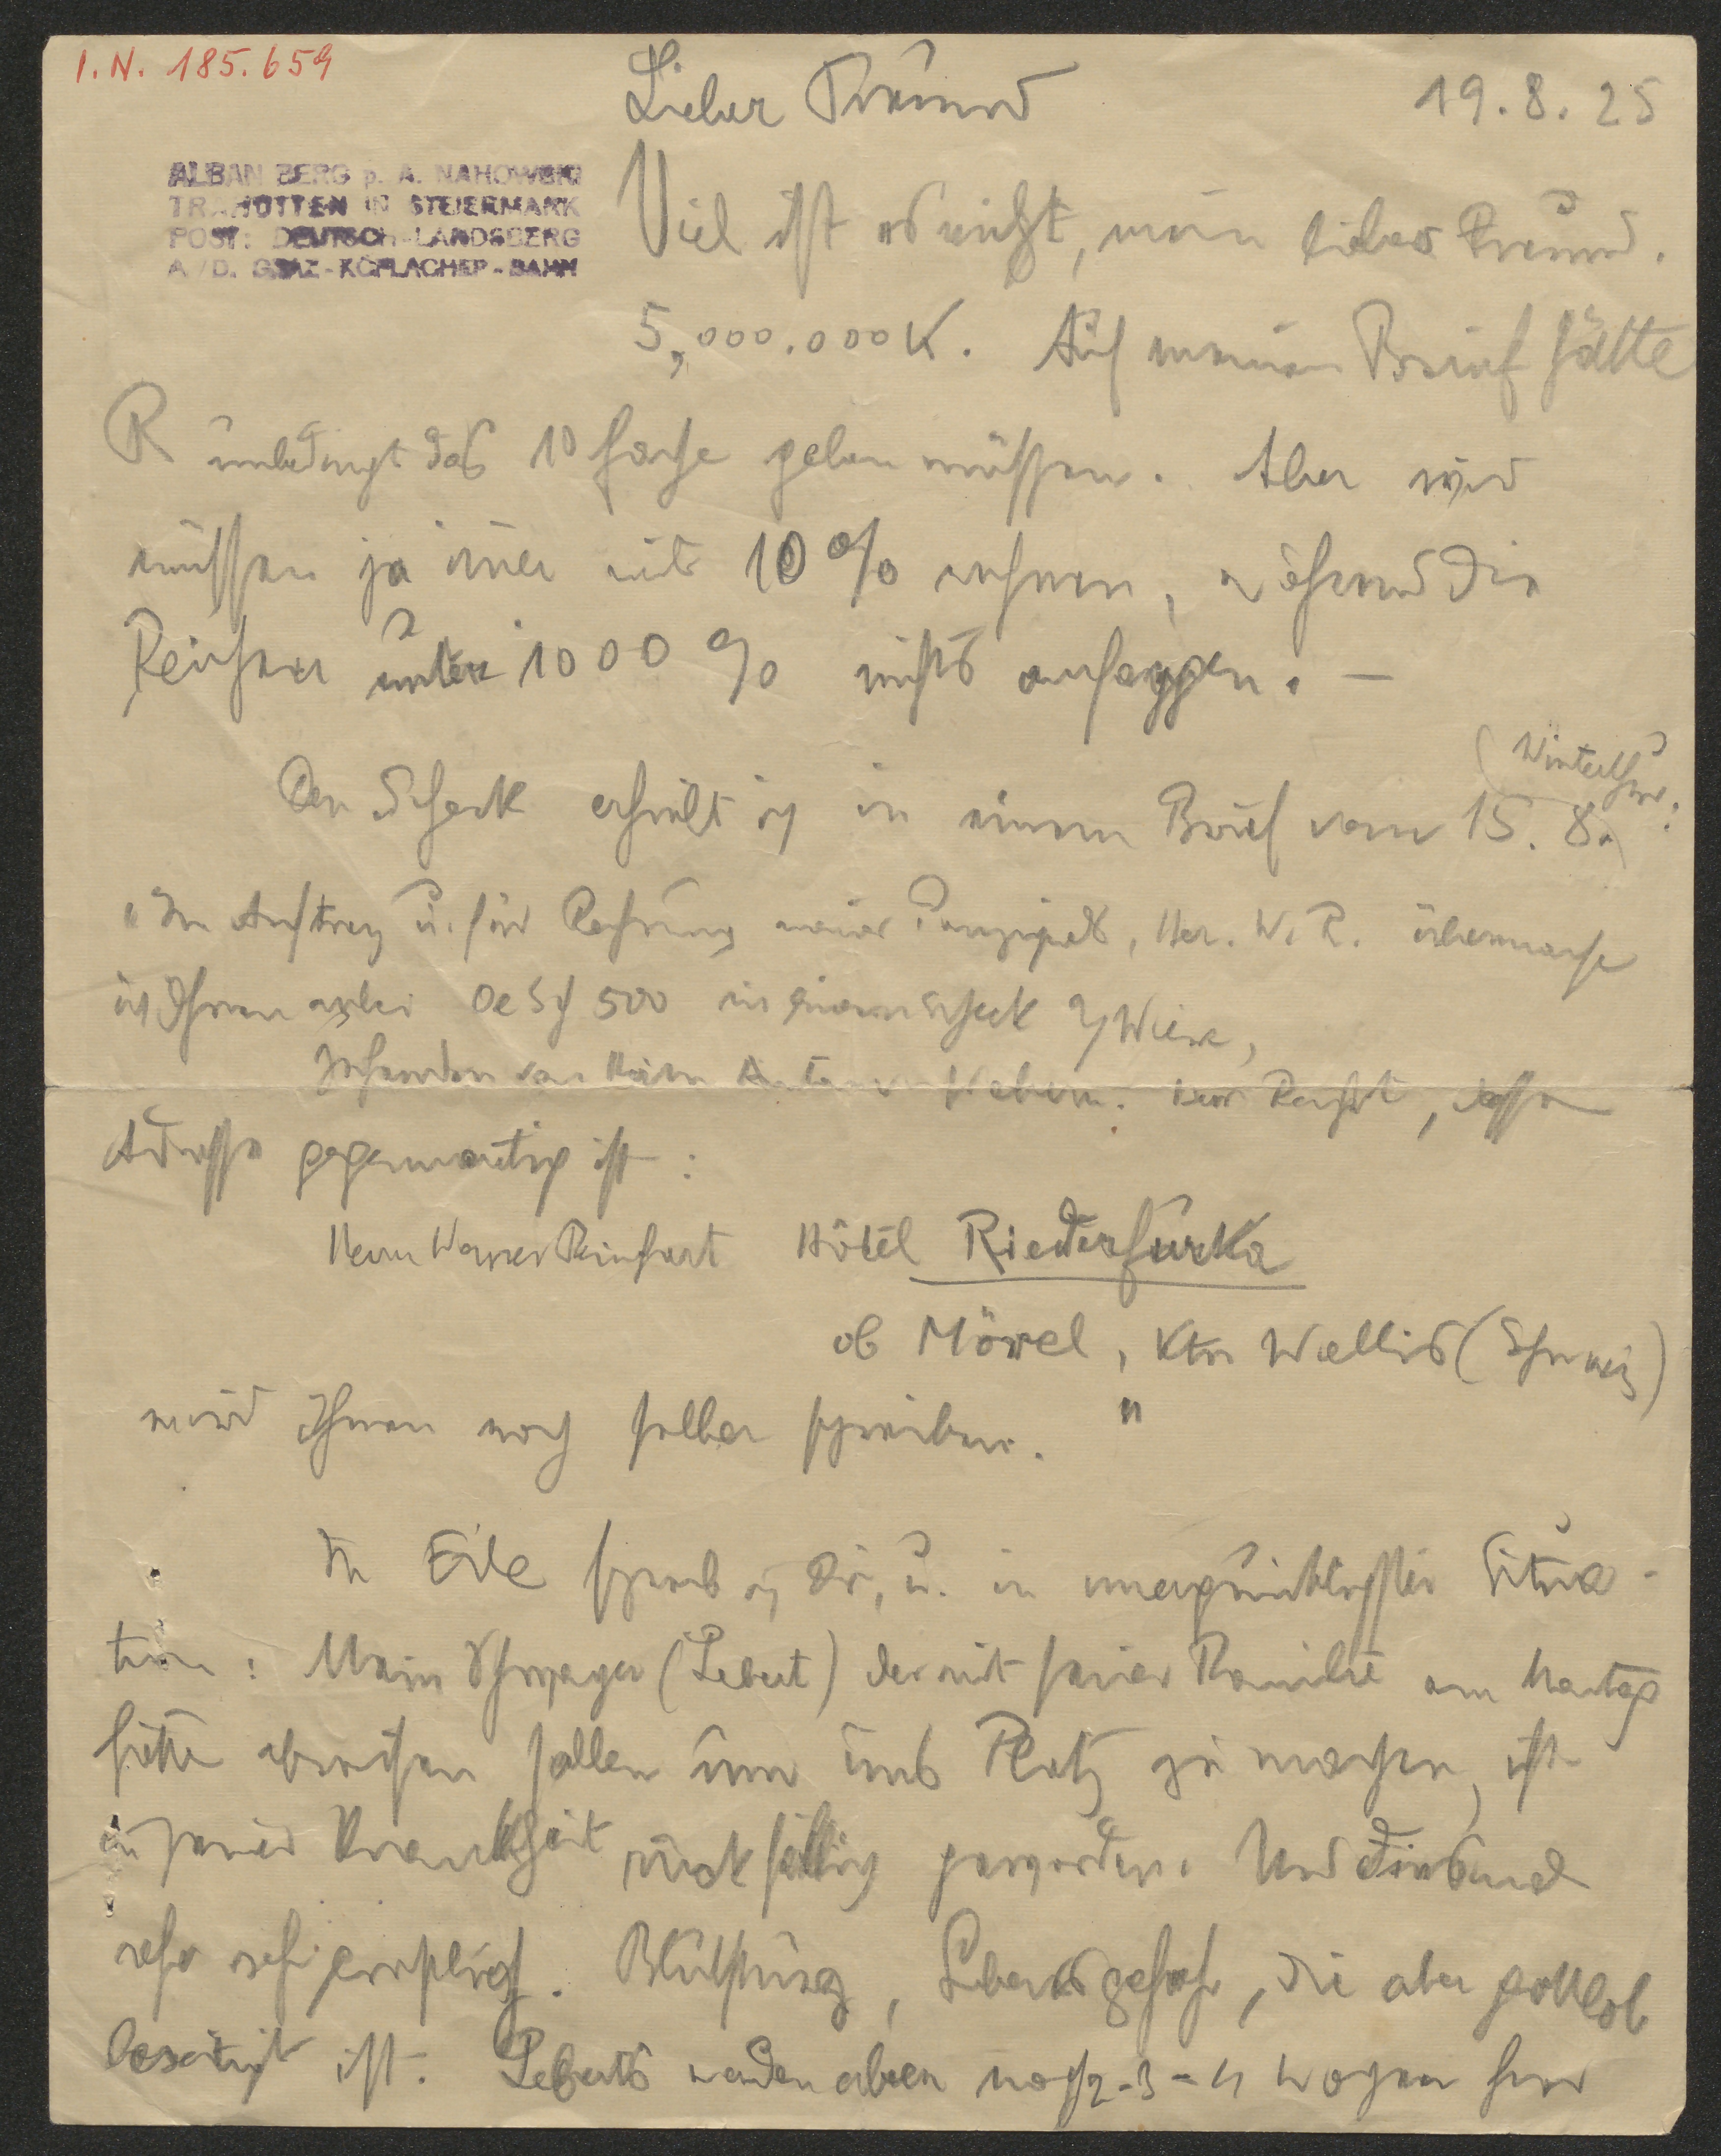 I.N. 185.659
Lieber Freund
19.8.25
ALBAN BERG p. A. NAHOWSKI
TRAHÜTTEN IN STEIERMARK
POST: DEUTSCH-LANDSBERG
A/D. GRAZ-KÖFLACHER-BAHN
Viel ist es nicht, mein lieber Freund.
5,000.000 K. Auf meinen Brief hätte
R unbedingt das 10 fache geben müssen. Aber wir
müssen ja immer mit 10 % rechnen, während die
Reichen unter 1000 % nichts anfangen. —
(Winterthur:
Den Scheck erhielt ich in einem Brief vom 15. 8.)
"Im Auftrag u. für Rechnung meines Prinzipals, Her. W. R. übermache
ich Ihnen anbei Oe Sch 500 in einem Scheck a/ Wien,
zuhanden von Herrn Anton v Webern. Herr Reinhart, dessen
Adresse gegenwärtig ist:
Herrn Werner Reinhart Hôtel Riederfurka
ob Mörel, Ktn Wallis (Schweiz)
wird Ihnen noch selber schreiben. "
In Eile schreib ich Dir, u. in unerquicklichster Situa-
tion: Mein Schwager (Lebert) der mit seiner Familie am Montag
hätte abreisen sollen um uns Platz zu machen, ist
in seiner Krankheit rückfällig geworden. Und diesmal
sehr sehr . Blutsturz, Lebensgefahr, die aber gottlob
beseitigt ist. Leberts werden aber noch 2-3-4 Wochen hier